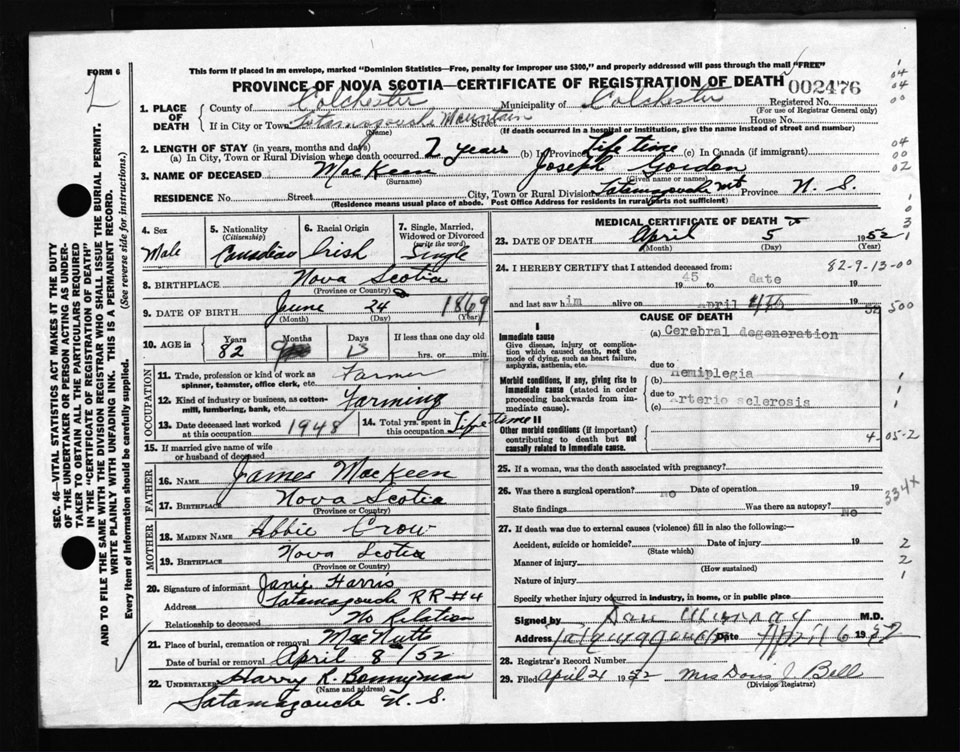 FORM 6
This form if placed in an envelope, marked "Dominion Statistics—Free, penalty for improper use $300," and properly addressed will pass through the mail "FREE"
PROVINCE OF NOVA SCOTIA—CERTIFICATE OF REGISTRATION OF DEATH
002476
Registered No.
(For use of Registrar General only)
1. PLACE OF DEATH
County of Colchester Municipality of Colchester
If in City or Town Tatamagouche Mountain Street House No.
(Name) (If death occurred in a hospital or institution, give the name instead of street and number)
2. LENGTH OF STAY (in years, months and days)
(a) In City, Town or Rural Division where death occurred 7 years (b) In Province Life time (c) In Canada (if immigrant)
3. NAME OF DECEASED MacKeen Joseph Gordon
(Surname) (Given name or names)
RESIDENCE No. Street City, Town or Rural Division Tatamagouch mt Province N. S.
(Residence means usual place of abode. Post Office Address for residents in rural parts not sufficient)
4. Sex
Male
5. Nationality
(Citizenship)
Canadian
6. Racial Origin
Irish
7. Single, Married, Widowed or Divorced
(write the word)
Single
8. BIRTHPLACE Nova Scotia
(Province or Country)
9. DATE OF BIRTH June 24 1869
(Month) (Day) (Year)
10. AGE in Years Months Days If less than one day
82 9 13 hrs. or min.
OCCUPATION
11. Trade, profession or kind of work as spinner, teamster, office clerk, etc. Farmer
12. Kind of industry or business, as cotton-mill, lumbering, bank, etc. Farming
13. Date deceased last worked at this occupation 1948
14. Total yrs. spent in this occupation Life time
15. If married give name of wife or husband of deceased
FATHER
16. NAME James MacKeen
17. BIRTHPLACE Nova Scotia
(Province or Country)
MOTHER
18. MAIDEN NAME Abbie Crow
19. BIRTHPLACE Nova Scotia
(Province or Country)
20. Signature of informant Janie Harris
Address Tatamagouch RR #4
Relationship to deceased No Relation
21. Place of burial, cremation or removal MacNutt
Date of burial or removal April 8/52
22. Undertaker Harry R. Bonnyman
(Name and address)
Tatamagouche N. S.
MEDICAL CERTIFICATE OF DEATH
23. DATE OF DEATH April 5 1952
(Month) (Day) (Year)
24. I HEREBY CERTIFY that I attended deceased from:
82-9-13-00
1945 to date 19
and last saw him alive on april 4th 19 52
500
CAUSE OF DEATH
I
Immediate cause
Give disease, injury or complication which caused death, not the mode of dying, such as heart failure, asphyxia, asthenia, etc.
(a) Cerebral degeneration
due to
Morbid conditions, if any, giving rise to immediate cause (stated in order proceeding backwards from immediate cause).
(b) Hemiplegia
due to
(c) Arterio sclerosis
II
Other morbid conditions (if important) contributing to death but not causally related to immediate cause.
4-05-2
25. If a woman, was the death associated with pregnancy?
26. Was there a surgical operation? no Date of operation 19
State findings Was there an autopsy? No
334x
27. If death was due to external causes (violence) fill in also the following:—
Accident, suicide or homicide? Date of injury 19
(State which)
Manner of injury
(How sustained)
Nature of injury
Specify whether injury occurred in industry, in home, or in public place
Signed by Dan Murray M.D.
Address Tatamagouche Date April 6 1952
28. Registrar's Record Number
29. Filed April 21 1952 Mrs Doris J. Bell
(Division Registrar)
SEC. 46—VITAL STATISTICS ACT MAKES IT THE DUTY OF THE UNDERTAKER OR PERSON ACTING AS UNDERTAKER TO OBTAIN ALL THE PARTICULARS REQUIRED IN THE "CERTIFICATE OF REGISTRATION OF DEATH" AND TO FILE THE SAME WITH THE DIVISION REGISTRAR WHO SHALL ISSUE THE BURIAL PERMIT.
WRITE PLAINLY WITH UNFADING INK. THIS IS A PERMANENT RECORD.
Every item of information should be carefully supplied. (See reverse side for instructions.)